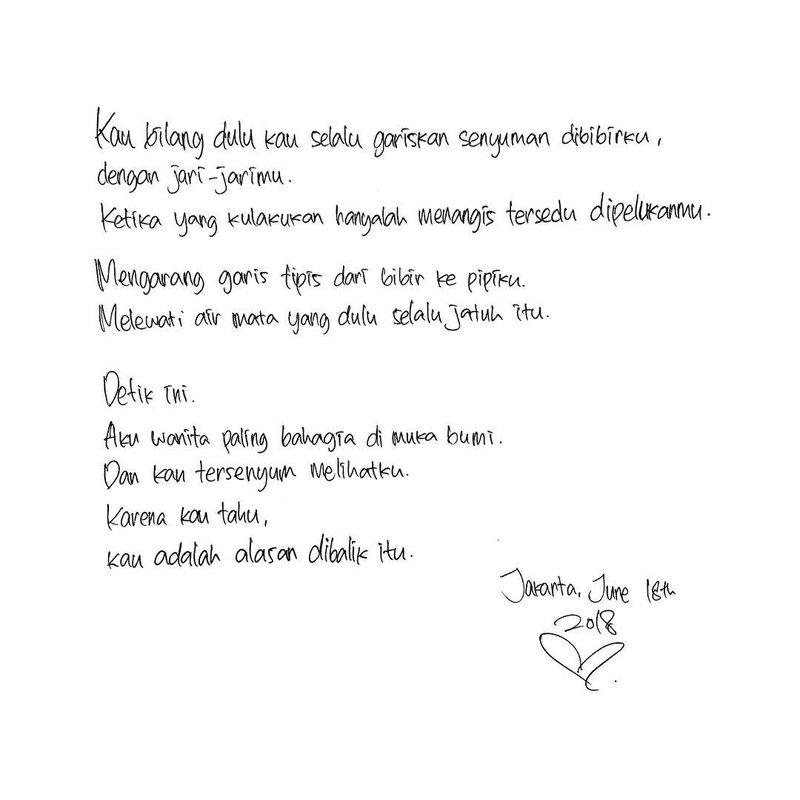 Kau bilang dulu kau selalu gariskan senyuman dibibirku,
dengan jari-jarimu.
Ketika yang kulakukan hanyalah menangis tersedu dipelukanmu.
Mengarang garis tipis dari bibir ke pipiku.
Melewati air mata yang dulu selalu jatuh itu.
Detik ini.
Aku wanita paling bahagia di muka bumi.
Dan kau tersenyum melihatku.
Karena kau tahu,
kau adalah alasan dibalik itu.
Jakarta, June 18th
2018